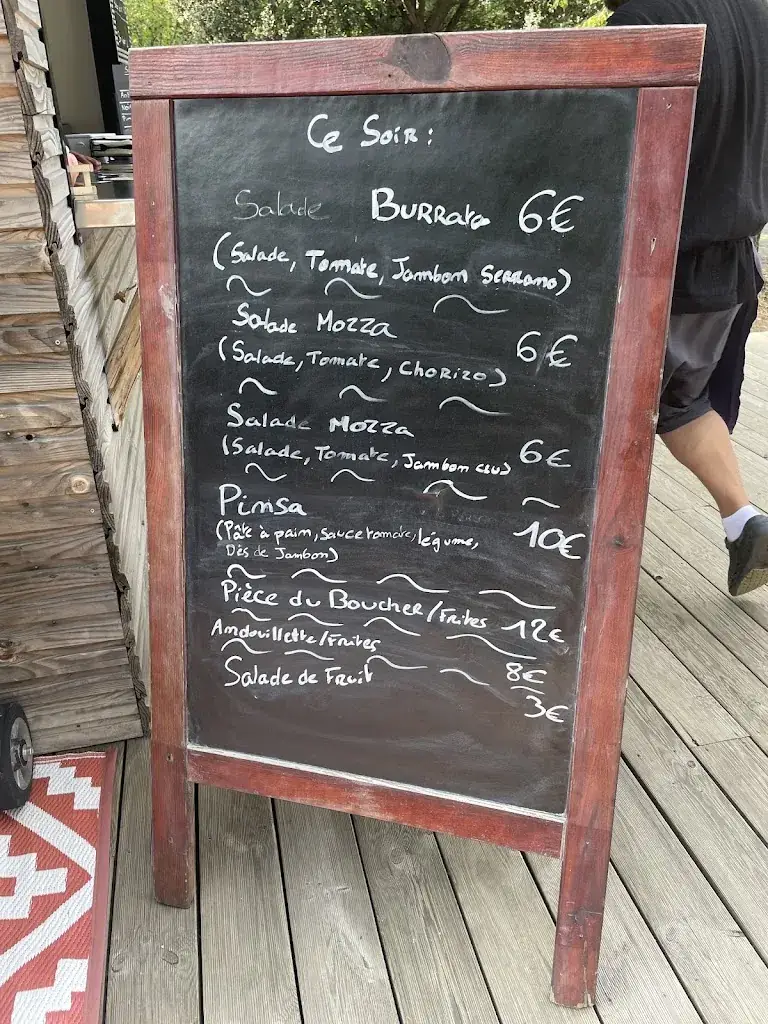 Ce Soir :
Salade Burrata 6€
(Salade, Tomate, Jambon Serrano)
Salade Mozza
6€
(Salade, Tomate, Chorizo)
Salade Mozza
(Salade, Tomate, Jambon cru) 6€
Pinsa
(Pâte à pain, sauce tomate, légume, 10€
Dès de Jambon)
Pièce du Boucher/Frites 12€
Andouillette/Frites
8€
Salade de Fruit
3€